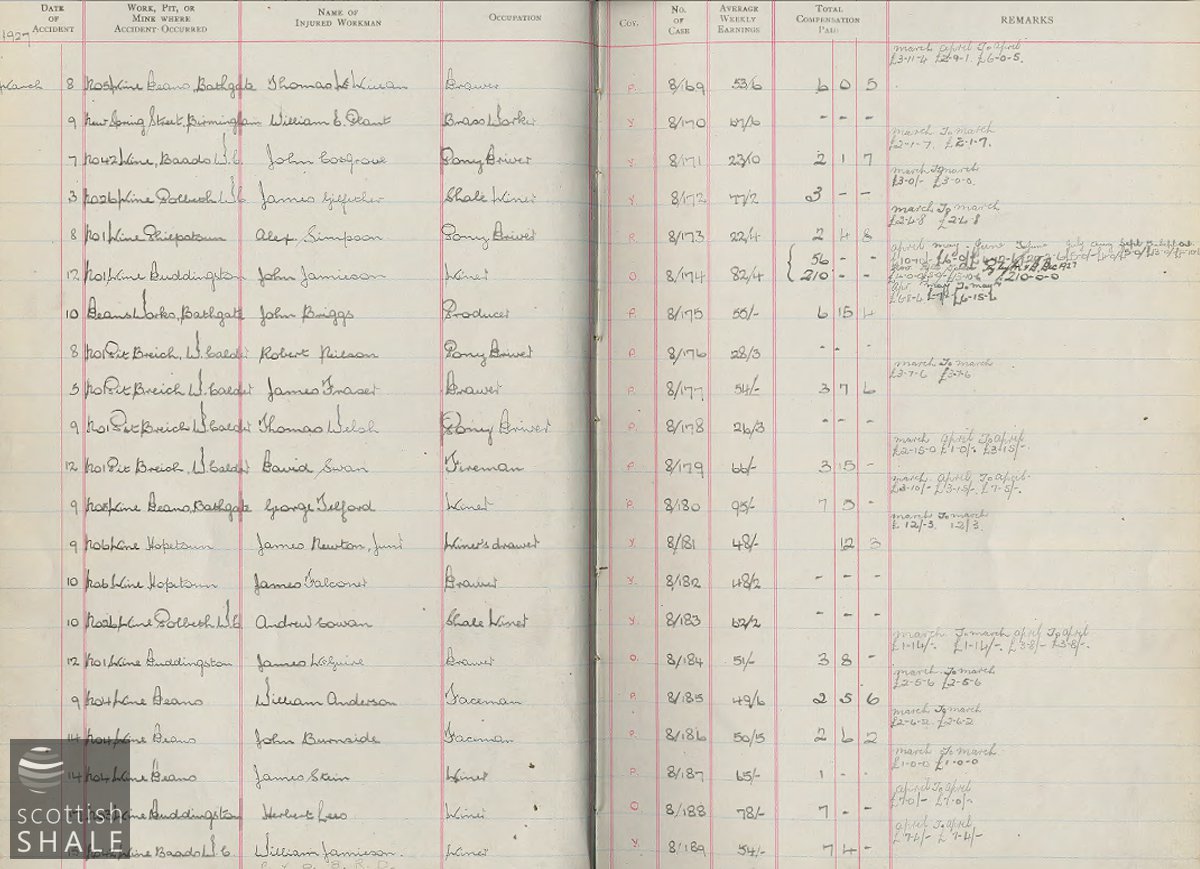 DATE OF ACCIDENT WORK, PIT, OR MINE WHERE ACCIDENT OCCURRED NAME OF INJURED WORKMAN OCCUPATION Coy. No. OF CASE AVERAGE WEEKLY EARNINGS TOTAL COMPENSATION PAID REMARKS
1927
march april To april
£3-11-4 £2-9-1. £6-0-5.
March 8 No5 Mine Deans, Bathgate Thomas Brawer P. 8/169 53/6 6 0 5
9 New Spring Street, Birmingham William E. Plant Brass Worker Y 8/170 - - -
march To march
£2-1-7. £2-1-7.
7 No42 Mine, Baads W.C. John Cosgrove Pony Driver Y 8/171 23/10 2 1 7
march To march
£3-0/- £3-0-0.
3 No26 Mine Polbeth W.C. James Shale Miner Y 8/172 77/2 3 - -
march To march
£2-4-8 £2-4-8
8 No1 Mine Alex Simpson Pony Driver P. 8/173 22/4 2 4 8
april may June To June July Aug Sept To Sept Oct.
56 - -
12 No1 Mine Duddingston John Jamieson Miner O 8/174 82/4 210 - -
£210-0-0
apr may To may
£6-15-4
10 Deans Works, Bathgate John Briggs Producer P. 8/175 55/- 6 15 4
8 No1 Pit Breich, W. Calder Robert Nilson Pony Driver P. 8/176 28/3 - - -
march To march
£3-7-6 £3-7-6
5 No1 Pit Breich W. Calder James Fraser Drawer P. 8/177 54/- 3 7 6
9 No1 Pit Breich W. Calder Thomas Welsh Pony Driver P. 8/178 26/3 - - -
march april To april
£2-15-0 £1-0/- £3-15/-
12 No1 Pit Breich, W. Calder David Swan Fireman P. 8/179 66/- 3 15 -
march april To april
£3-10/- £3-15/- £7-5/-
9 No5 Mine Deans, Bathgate George Telford Miner P. 8/180 95/- 7 5 -
march To march
£ 12/-3. 12/3.
9 No6 Mine Hopetoun James Newton, Junr Miner's drawer Y. 8/181 48/- 12 3
10 No6 Mine Hopetoun James Falconer Drawer Y. 8/182 48/2 - - -
10 No26 Mine Polbeth W.C. Andrew Cowan Shale Miner Y. 8/183 62/2 - - -
march To march april To april
£1-14/- £1-14/-. £3-8/- £3-8/-.
12 No1 Mine Duddingston James McGuire Drawer O. 8/184 51/- 3 8 -
march To march
£2-5-6 £2-5-6
9 No4 Mine Deans William Anderson Faceman P. 8/185 49/6 2 5 6
march To march
£2-6-2. £2-6-2
14 No4 Mine Deans John Burnside Faceman P. 8/186 50/5 2 6 2
march To march
£1-0-0 £1-0-0
14 No4 Mine Deans James Stein Miner P. 8/187 65/- 1 - -
april To april
£7-0/- £7-0/-
Mine Duddingston Herbert Lees Miner O. 8/188 78/- 7 - -
april To april
£7-4/- £7-4/-
Mine Baads W.C. William Jamieson. Miner Y. 8/189 54/- 7 4 -
scottish
SHALE